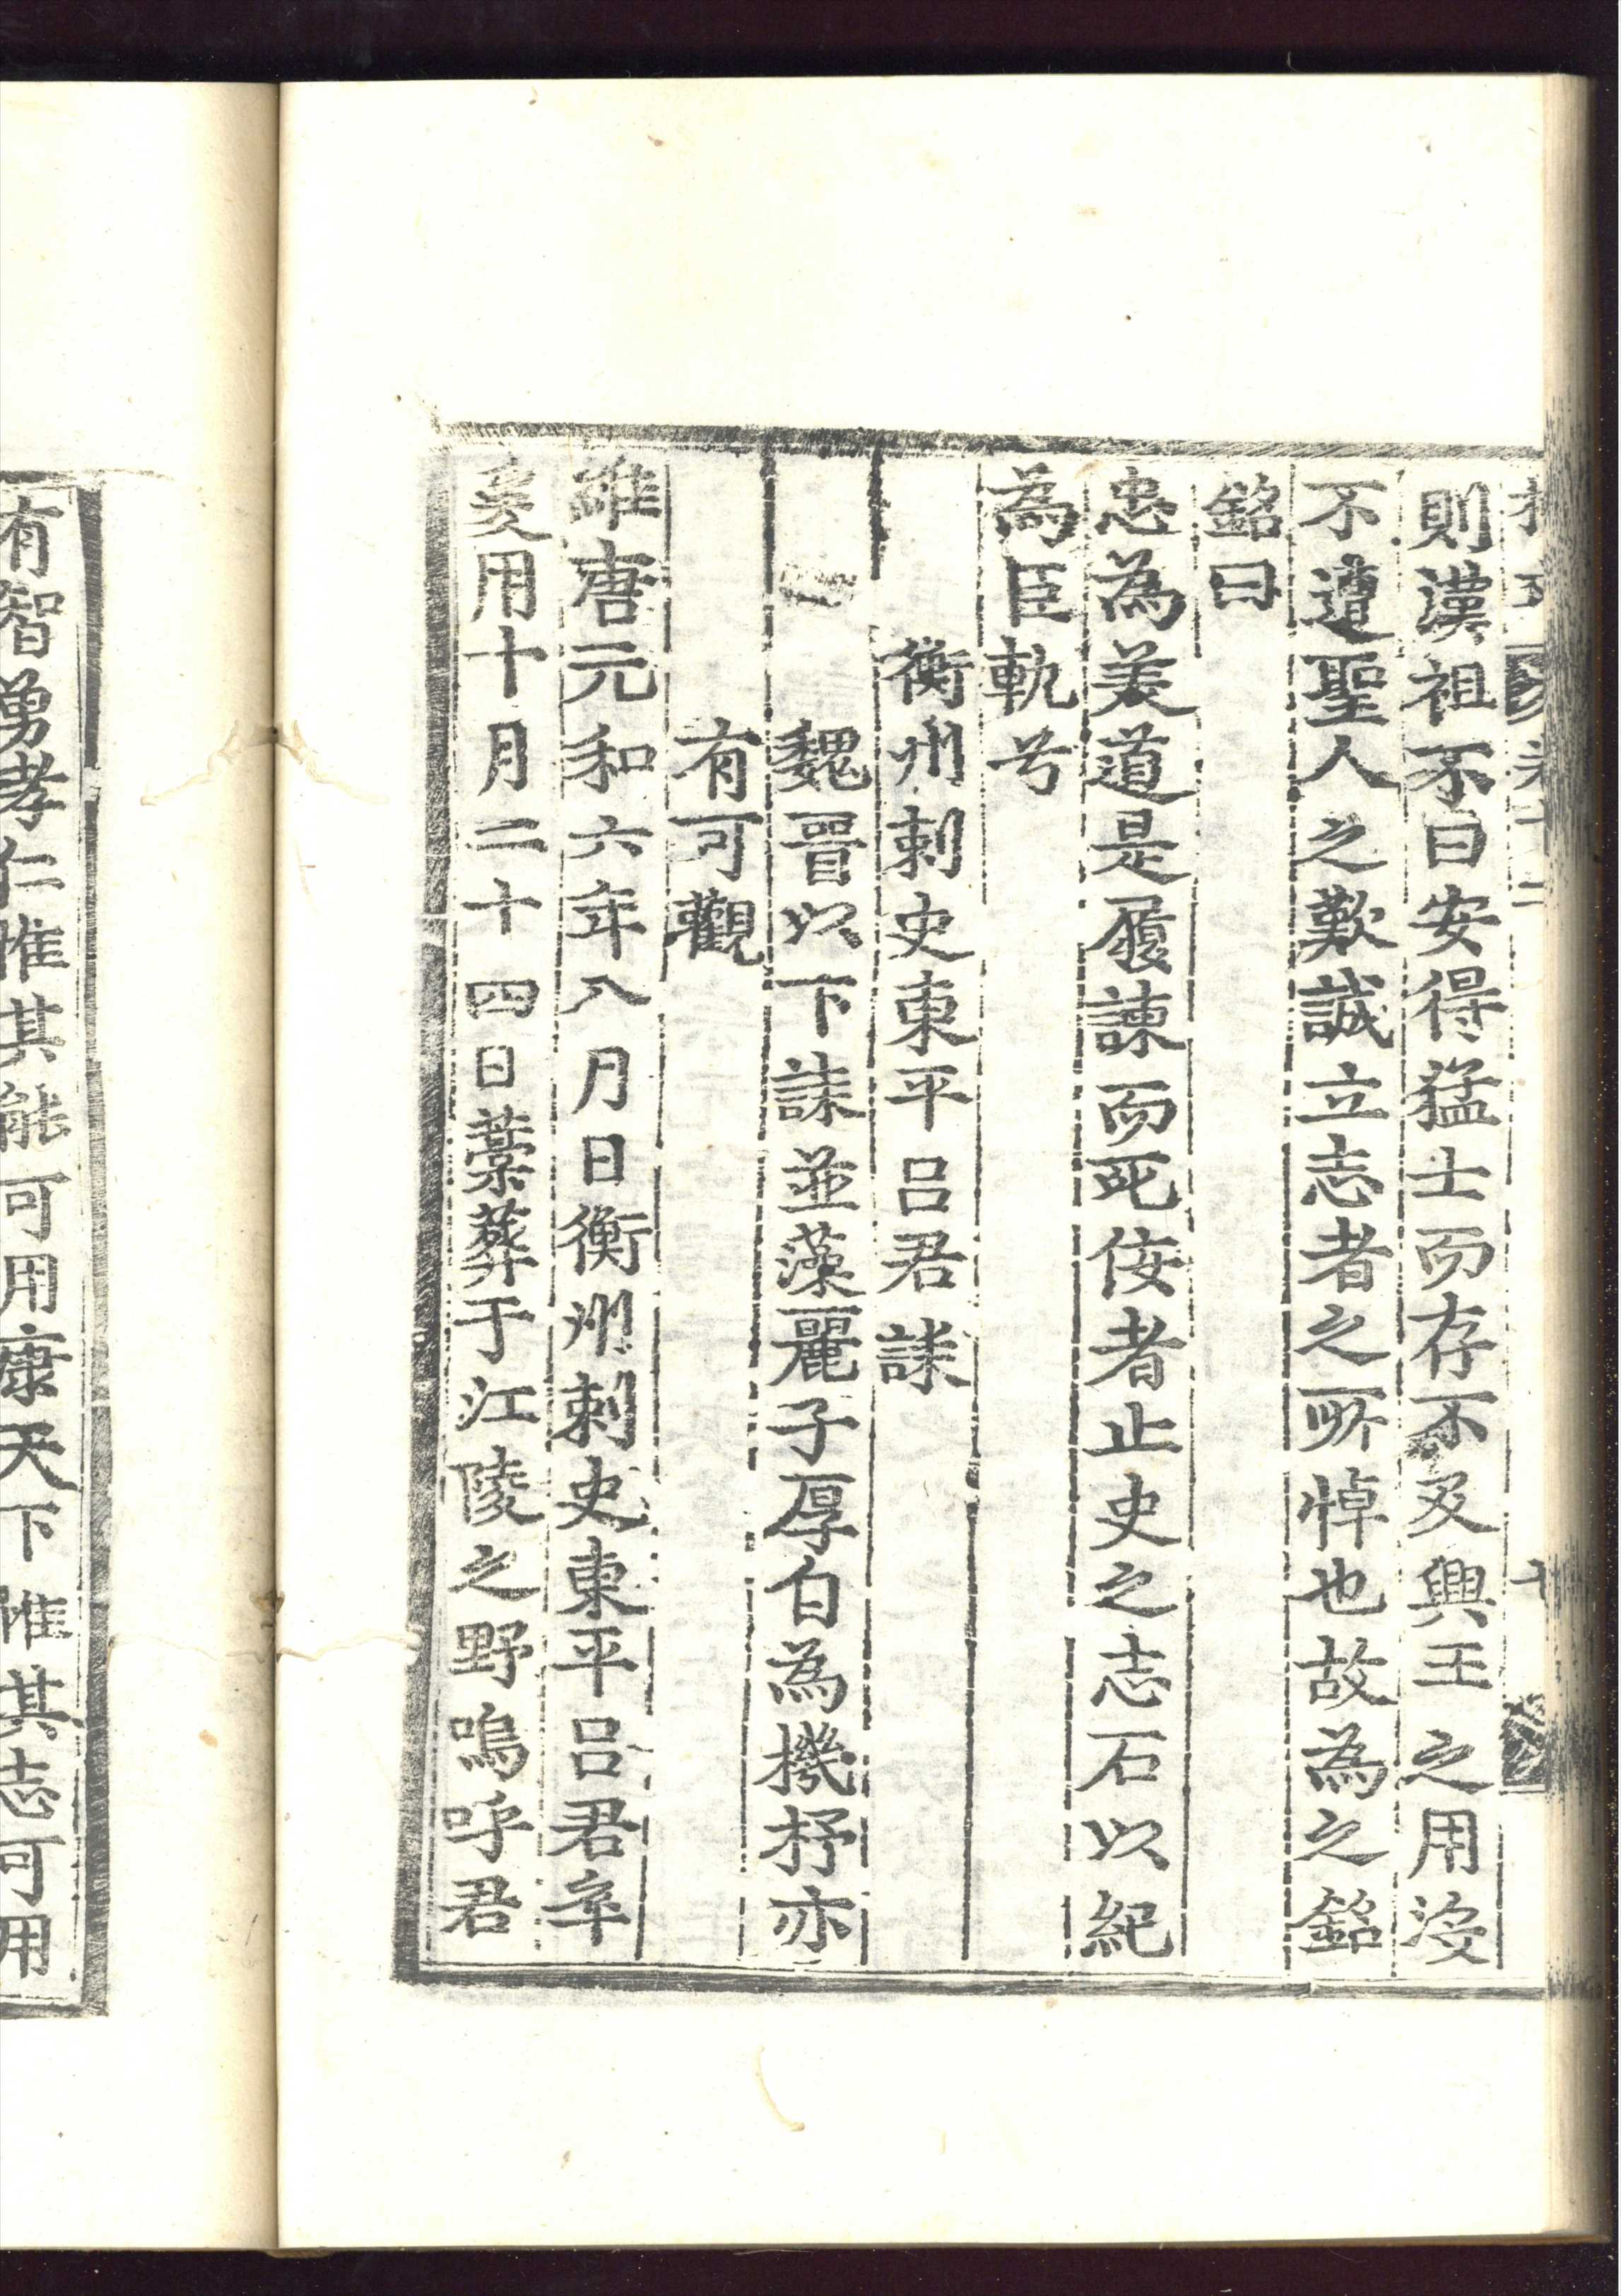 則漢祖不曰安得猛士而存不及興王之用沒
不遭聖人之歎誠立志者之所悼也故為之銘
銘曰
忠為美道是履諫而死侫者止史之志石以紀
為臣軌兮
衡州刺史東平呂君誄
魏晉以下誄並藻麗子厚自為機杼亦
有可觀
維唐元和六年八月日衡州刺史東平呂君卒
爰用十月二十四日藁葬于江陵之野嗚呼君
有智勇孝仁惟其能可用康天下惟其志可用